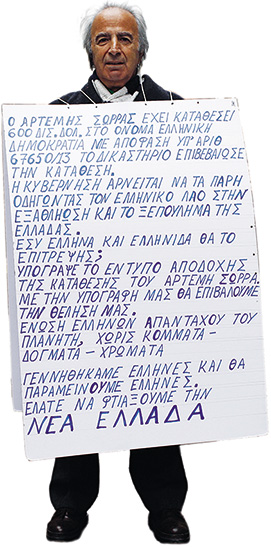 Ο ΑΡΤΕΜΗΣ ΣΩΡΡΑΣ ΕΧΕΙ ΚΑΤΑΘΕΣΕΙ
600 ΔΙΣ. ΔΟΛ. ΣΤΟ ΟΝΟΜΑ ΕΛΛΗΝΙΚΗ
ΔΗΜΟΚΡΑΤΙΑ ΜΕ ΑΠΟΦΑΣΗ ΥΠ'ΑΡΙΘ
67650/13 ΤΟ ΔΙΚΑΣΤΗΡΙΟ ΕΠΙΒΕΒΑΙΩΣΕ
ΤΗΝ ΚΑΤΑΘΕΣΗ.
Η ΚΥΒΕΡΝΗΣΗ ΑΡΝΕΙΤΑΙ ΝΑ ΤΑ ΠΑΡΗ
ΟΔΗΓΩΝΤΑΣ ΤΟΝ ΕΛΛΗΝΙΚΟ ΛΑΟ ΣΤΗΝ
ΕΞΑΘΛΙΩΣΗ ΚΑΙ ΤΟ ΞΕΠΟΥΛΗΜΑ ΤΗΣ
ΕΛΛΑΔΑΣ.
ΕΣΥ ΕΛΛΗΝΑ ΚΑΙ ΕΛΛΗΝΙΔΑ ΘΑ ΤΟ
ΕΠΙΤΡΕΨΗΣ;
ΥΠΟΓΡΑΨΕ ΤΟ ΕΝΤΥΠΟ ΑΠΟΔΟΧΗΣ
ΤΗΣ ΚΑΤΑΘΕΣΗΣ ΤΟΥ ΑΡΤΕΜΗ ΣΩΡΡΑ.
ΜΕ ΤΗΝ ΥΠΟΓΡΑΦΗ ΜΑΣ ΘΑ ΕΠΙΒΑΛΟΥΜΕ
ΤΗΝ ΘΕΛΗΣΗ ΜΑΣ.
ΕΝΩΣΗ ΕΛΛΗΝΩΝ ΑΠΑΝΤΑΧΟΥ ΤΟΥ
ΠΛΑΝΗΤΗ, ΧΩΡΙΣ ΚΟΜΜΑΤΑ –
ΔΟΓΜΑΤΑ – ΧΡΩΜΑΤΑ
ΓΕΝΝΗΘΗΚΑΜΕ ΕΛΛΗΝΕΣ ΚΑΙ ΘΑ
ΠΑΡΑΜΕΙΝΟΥΜΕ ΕΛΛΗΝΕΣ.
ΕΛΑΤΕ ΝΑ ΦΤΙΑΞΟΥΜΕ ΤΗΝ
ΝΕΑ ΕΛΛΑΔΑ